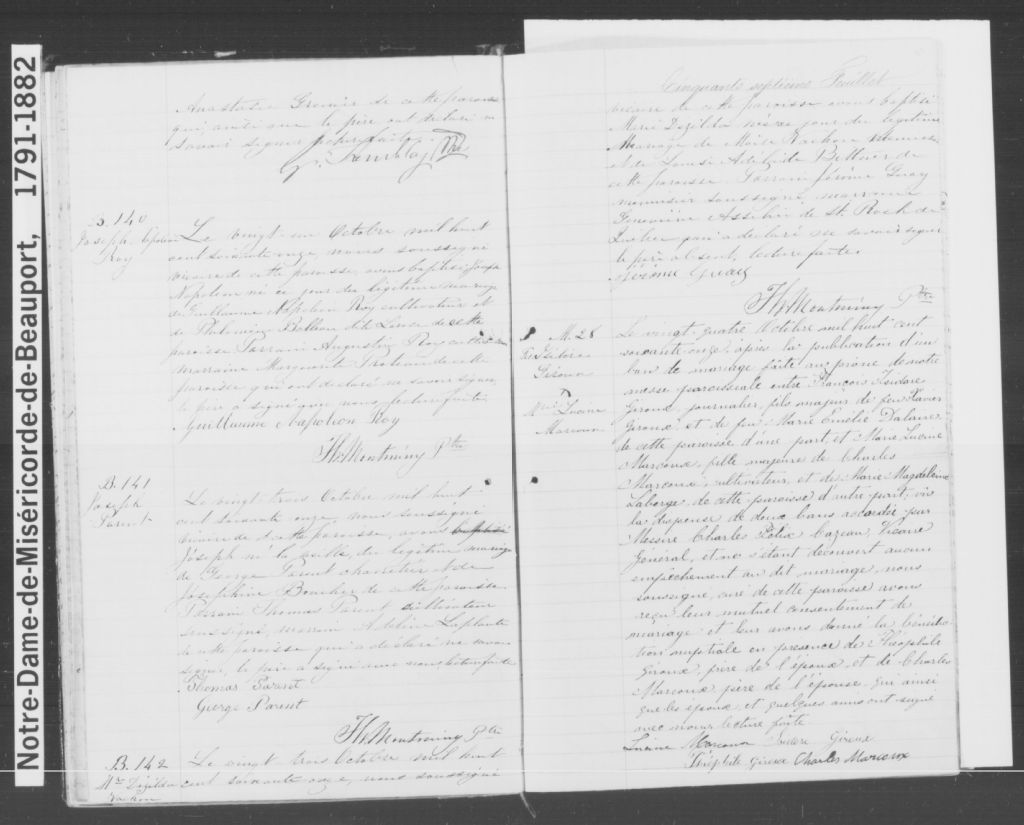 Notre-Dame-de-Miséricorde-de-Beauport, 1791-1882
Anastasie Grenier de cette paroisse
qui ainsi que le père ont déclaré ne
savoir signer lecture faite.
J. Tremblay Ptre
B. 140
Joseph Napoléon
Roy
Le vingt un Octobre mil huit
cent soixante onze, nous soussigné
vicaire de cette paroisse, avons baptisé Joseph
Napoléon né ce jour du légitime mariage
de Guillaume Napoléon Roy cultivateur et
de Philomène de cette
paroisse Parrain Augustin Roy
marraine Marguerite de cette
paroisse qui ont déclaré ne savoir signer,
le père a signé avec nous, lecture faite
Guillaume Napoléon Roy
Th. Montminy Ptre
B. 141
Joseph
Parent
Le vingt trois Octobre mil huit
cent soixante onze, nous soussigné
vicaire de cette paroisse, avons baptisé
Joseph né la veille, du légitime mariage
de George Parent charretier et de
Joséphine Boucher de cette paroisse.
Parrain Thomas Parent cultivateur
soussigné, marraine Adeline Laplante
de cette paroisse qui a déclaré ne savoir
signer, le père a signé avec nous lecture faite
Thomas Parent
George Parent
Th. Montminy Ptre
B. 142
Mie Dézilda
Vachon
Le vingt trois Octobre mil huit
cent soixante onze, nous soussigné
Cinquante septième Feuillet
vicaire de cette paroisse avons baptisé
Marie Dézilda née ce jour du légitime
mariage de Moïse Vachon menuisier
et de Louise Adélaïde de
cette paroisse. Parrain Jérôme
menuisier soussigné, marraine
Geneviève Asselin de St. Roch de
Québec qui a déclaré ne savoir signer
le père absent, lecture faite
Jérôme
Th. Montminy Ptre
M. 28
Frs Isidore
Giroux
&
Mie Lucine
Marcoux
Le vingt quatre Octobre mil huit cent
soixante onze, après la publication d'un
ban de mariage faite au prône de notre
messe paroissiale entre François Isidore
Giroux journalier, fils majeur de feu Xavier
Giroux et de feu Marie Emélie Dalaire
de cette paroisse d'une part, et Marie Lucine
Marcoux, fille majeure de Charles
Marcoux, cultivateur, et de Marie Magdeleine
Laberge, de cette paroisse d'autre part; vis
la dispense de deux bans accordée par
Messire Charles Félix Cazeau, Vicaire
Général, et ne s'étant découvert aucun
empêchement au dit mariage, nous
soussigné, curé de cette paroisse avons
reçu leur mutuel consentement de
mariage et leur avons donné la bénédic-
tion nuptiale en présence de Théophile
Giroux, frère de l'époux, et de Charles
Marcoux, père de l'épouse qui ainsi
que les époux et quelques amis ont signé
avec nous lecture faite
Lucine Marcoux Isidore Giroux
Théophile Giroux Charles Marcoux